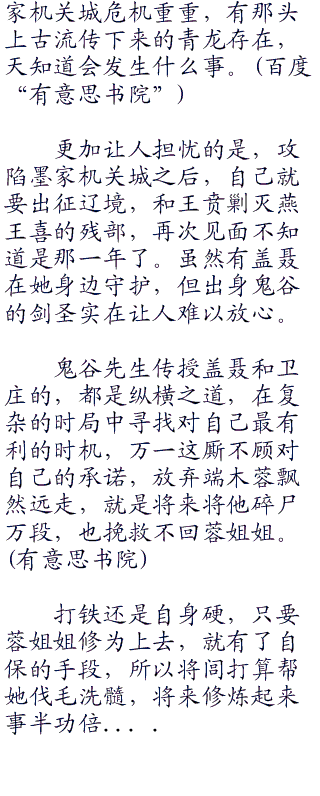 家机关城危机重重，有那头
上古流传下来的青龙存在，
天知道会发生什么事。(百度
“有意思书院”)
更加让人担忧的是，攻
陷墨家机关城之后，自己就
要出征辽境，和王贲剿灭燕
王喜的残部，再次见面不知
道是那一年了。虽然有盖聂
在她身边守护，但出身鬼谷
的剑圣实在让人难以放心。
鬼谷先生传授盖聂和卫
庄的，都是纵横之道，在复
杂的时局中寻找对自己最有
利的时机，万一这厮不顾对
自己的承诺，放弃端木蓉飘
然远走，就是将来将他碎尸
万段，也挽救不回蓉姐姐。
(有意思书院)
打铁还是自身硬，只要
蓉姐姐修为上去，就有了自
保的手段，所以将闾打算帮
她伐毛洗髓，将来修炼起来
事半功倍．．．．